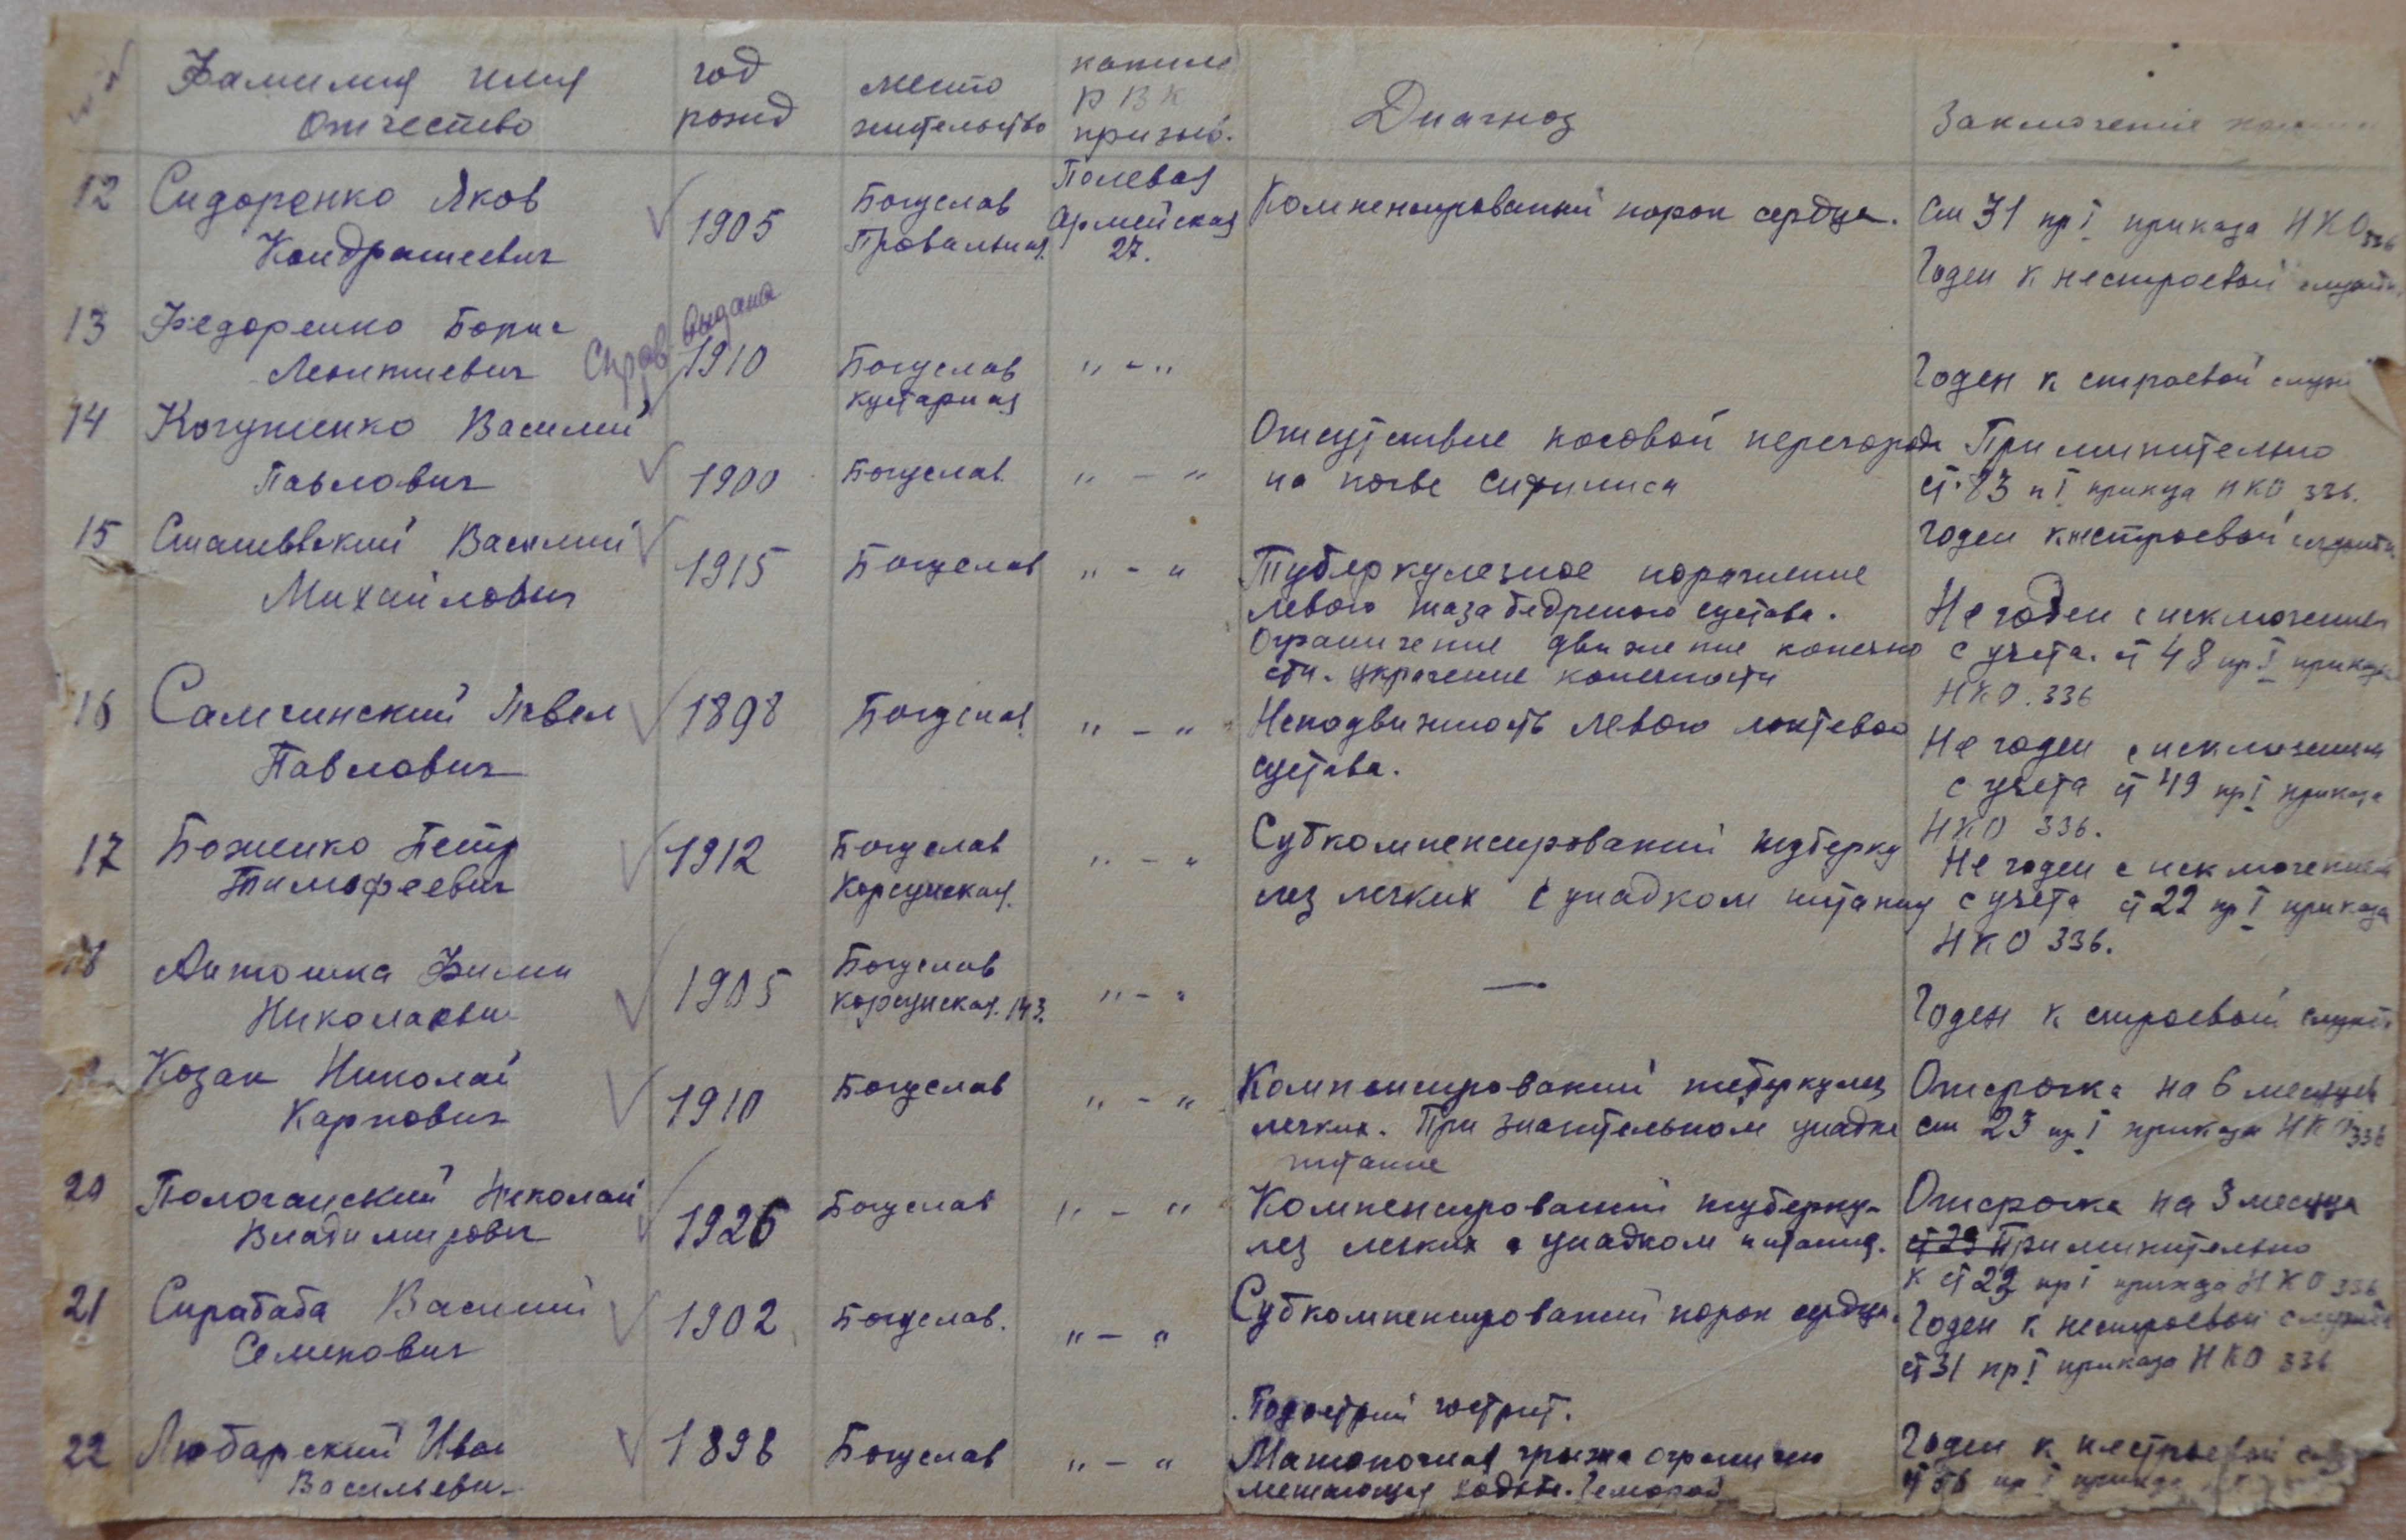 Фамилия имя Отчество
год рожд
место жительство
каким РВК призыв.
Диагноз
Заключение
12 Сидоренко Яков Кондратиевич
1905
Богуслав Провальная
Полевая Армейская 27.
Компенсированный порок сердца.
Ст 31 пр I приказа НКО 336
Годен к нестроевой службе
13 Федоренко Борис Леонтиевич
Справ. выдана
1910
Богуслав кустарная
" - "
Годен к строевой служ
14 Когутенко Василий Павлович
1900
Богуслав.
" - "
Отсутствие носовой перегород
на почве сифилиса
Применительно
ст. 83 п I приказа НКО 336.
Годен к нестроевой службе
15 Сташевский Василий Михайлович
1915
Богуслав
" - "
Туберкулезное поражение
левого таза бедреного сустава.
Ограничение движение конечно
сти. укрочение конечности
Не годен с исключением
с учета. ст 48 пр I приказа
НКО. 336
16 Самчинский Павел Павлович
1898
Богуслав
" - "
Неподвижность левого локтевого
сустава.
Не годен с исключением
с учета ст 49 пр I приказа
НКО 336.
17 Боженко Петр Тимофеевич
1912
Богуслав Корсунская.
" - "
Субкомпенсированый туберку
лез легких с упадком питания
Не годен с исключением
с учета ст 22 пр I приказа
НКО 336.
18 Антошка Филип Николаевич
1905
Богуслав корсунская. 143.
" - "
—
Годен к строевой службе
Козак Николай Карпович
1910
Богуслав
" - "
Компенсированый туберкулез
легких. При значительном упадке
питание
Отсрочка на 6 месяцев
ст 23 пр I приказа НКО 336
20 Пологанский Николай Владимирович
1926
Богуслав
" - "
Компенсированый туберку-
лез легких с упадком питания.
Отсрочка на 3 месяца
ст 23 Применительно
к ст 22 пр I приказа НКО 336
21 Сирабаба Василий Семенович
1902
Богуслав.
" - "
Субкомпенсированый порок сердца.
Годен к нестроевой службе
ст 31 пр I приказа НКО 336
22 Любарский Иван Васильевич
1898
Богуслав
" - "
Подострий гастрит.
Мошоночная грыжа ограничено
мешающая ходьбе. Геморой
Годен к нестроевой
ст 56 пр I приказа